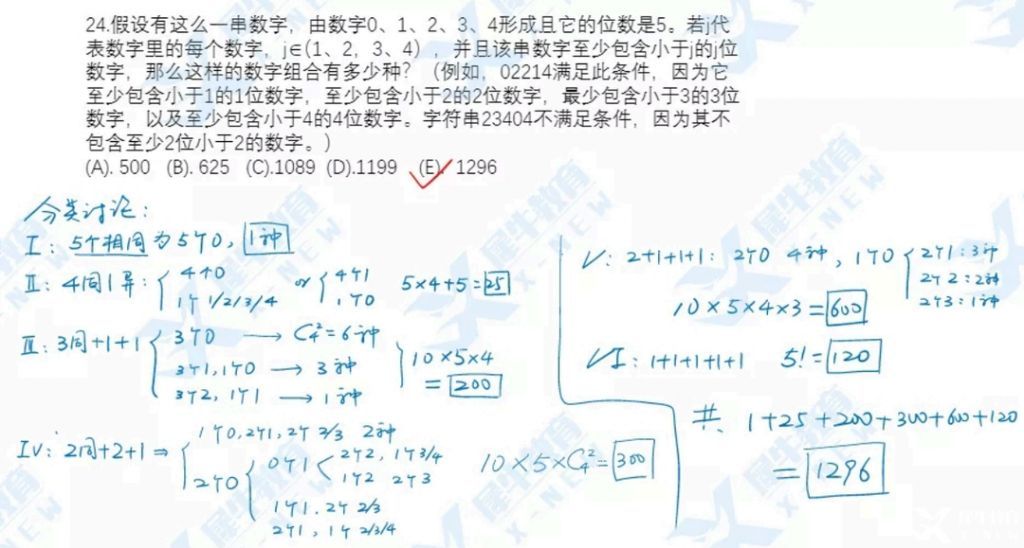 24.假设有这么一串数字，由数字0、1、2、3、4形成且它的位数是5。若j代
表数字里的每个数字，j∈(1、2，3、4），并且该串数字至少包含小于j的j位
数字，那么这样的数字组合有多少种？（例如，02214满足此条件，因为它
至少包含小于1的1位数字，至少包含小于2的2位数字，最少包含小于3的3位
数字，以及至少包含小于4的4位数字。字符串23404不满足条件，因为其不
包含至少2位小于2的数字。）
(A). 500 (B). 625 (C).1089 (D).1199 (E). 1296
分类讨论：
I：5个相同为5个0，1种
II：4同1异：
4个0
1个1/2/3/4
or
4个1
1个0
5×4+5=25
III：3同+1+1
3个0 → C₄²=6种
3个1,1个0 → 3种
3个2,1个1 → 1种
10×5×4
=200
IV：2同+2+1⇒
1个0,2个1,2个2/3 2种
2个0
0个1
2个2，1个3/4
1个2 2个3
1个1.2个2/3
2个1，1个2/3/4
10×5×C₄²=300
V：2+1+1+1：2个0 4种，1个0
2个1：3种
2个2：2种
2个3：1种
10×5×4×3=600
VI：1+1+1+1+1 5!=120
共 1+25+200+300+600+120
=1296
犀牛教育
X-NEW